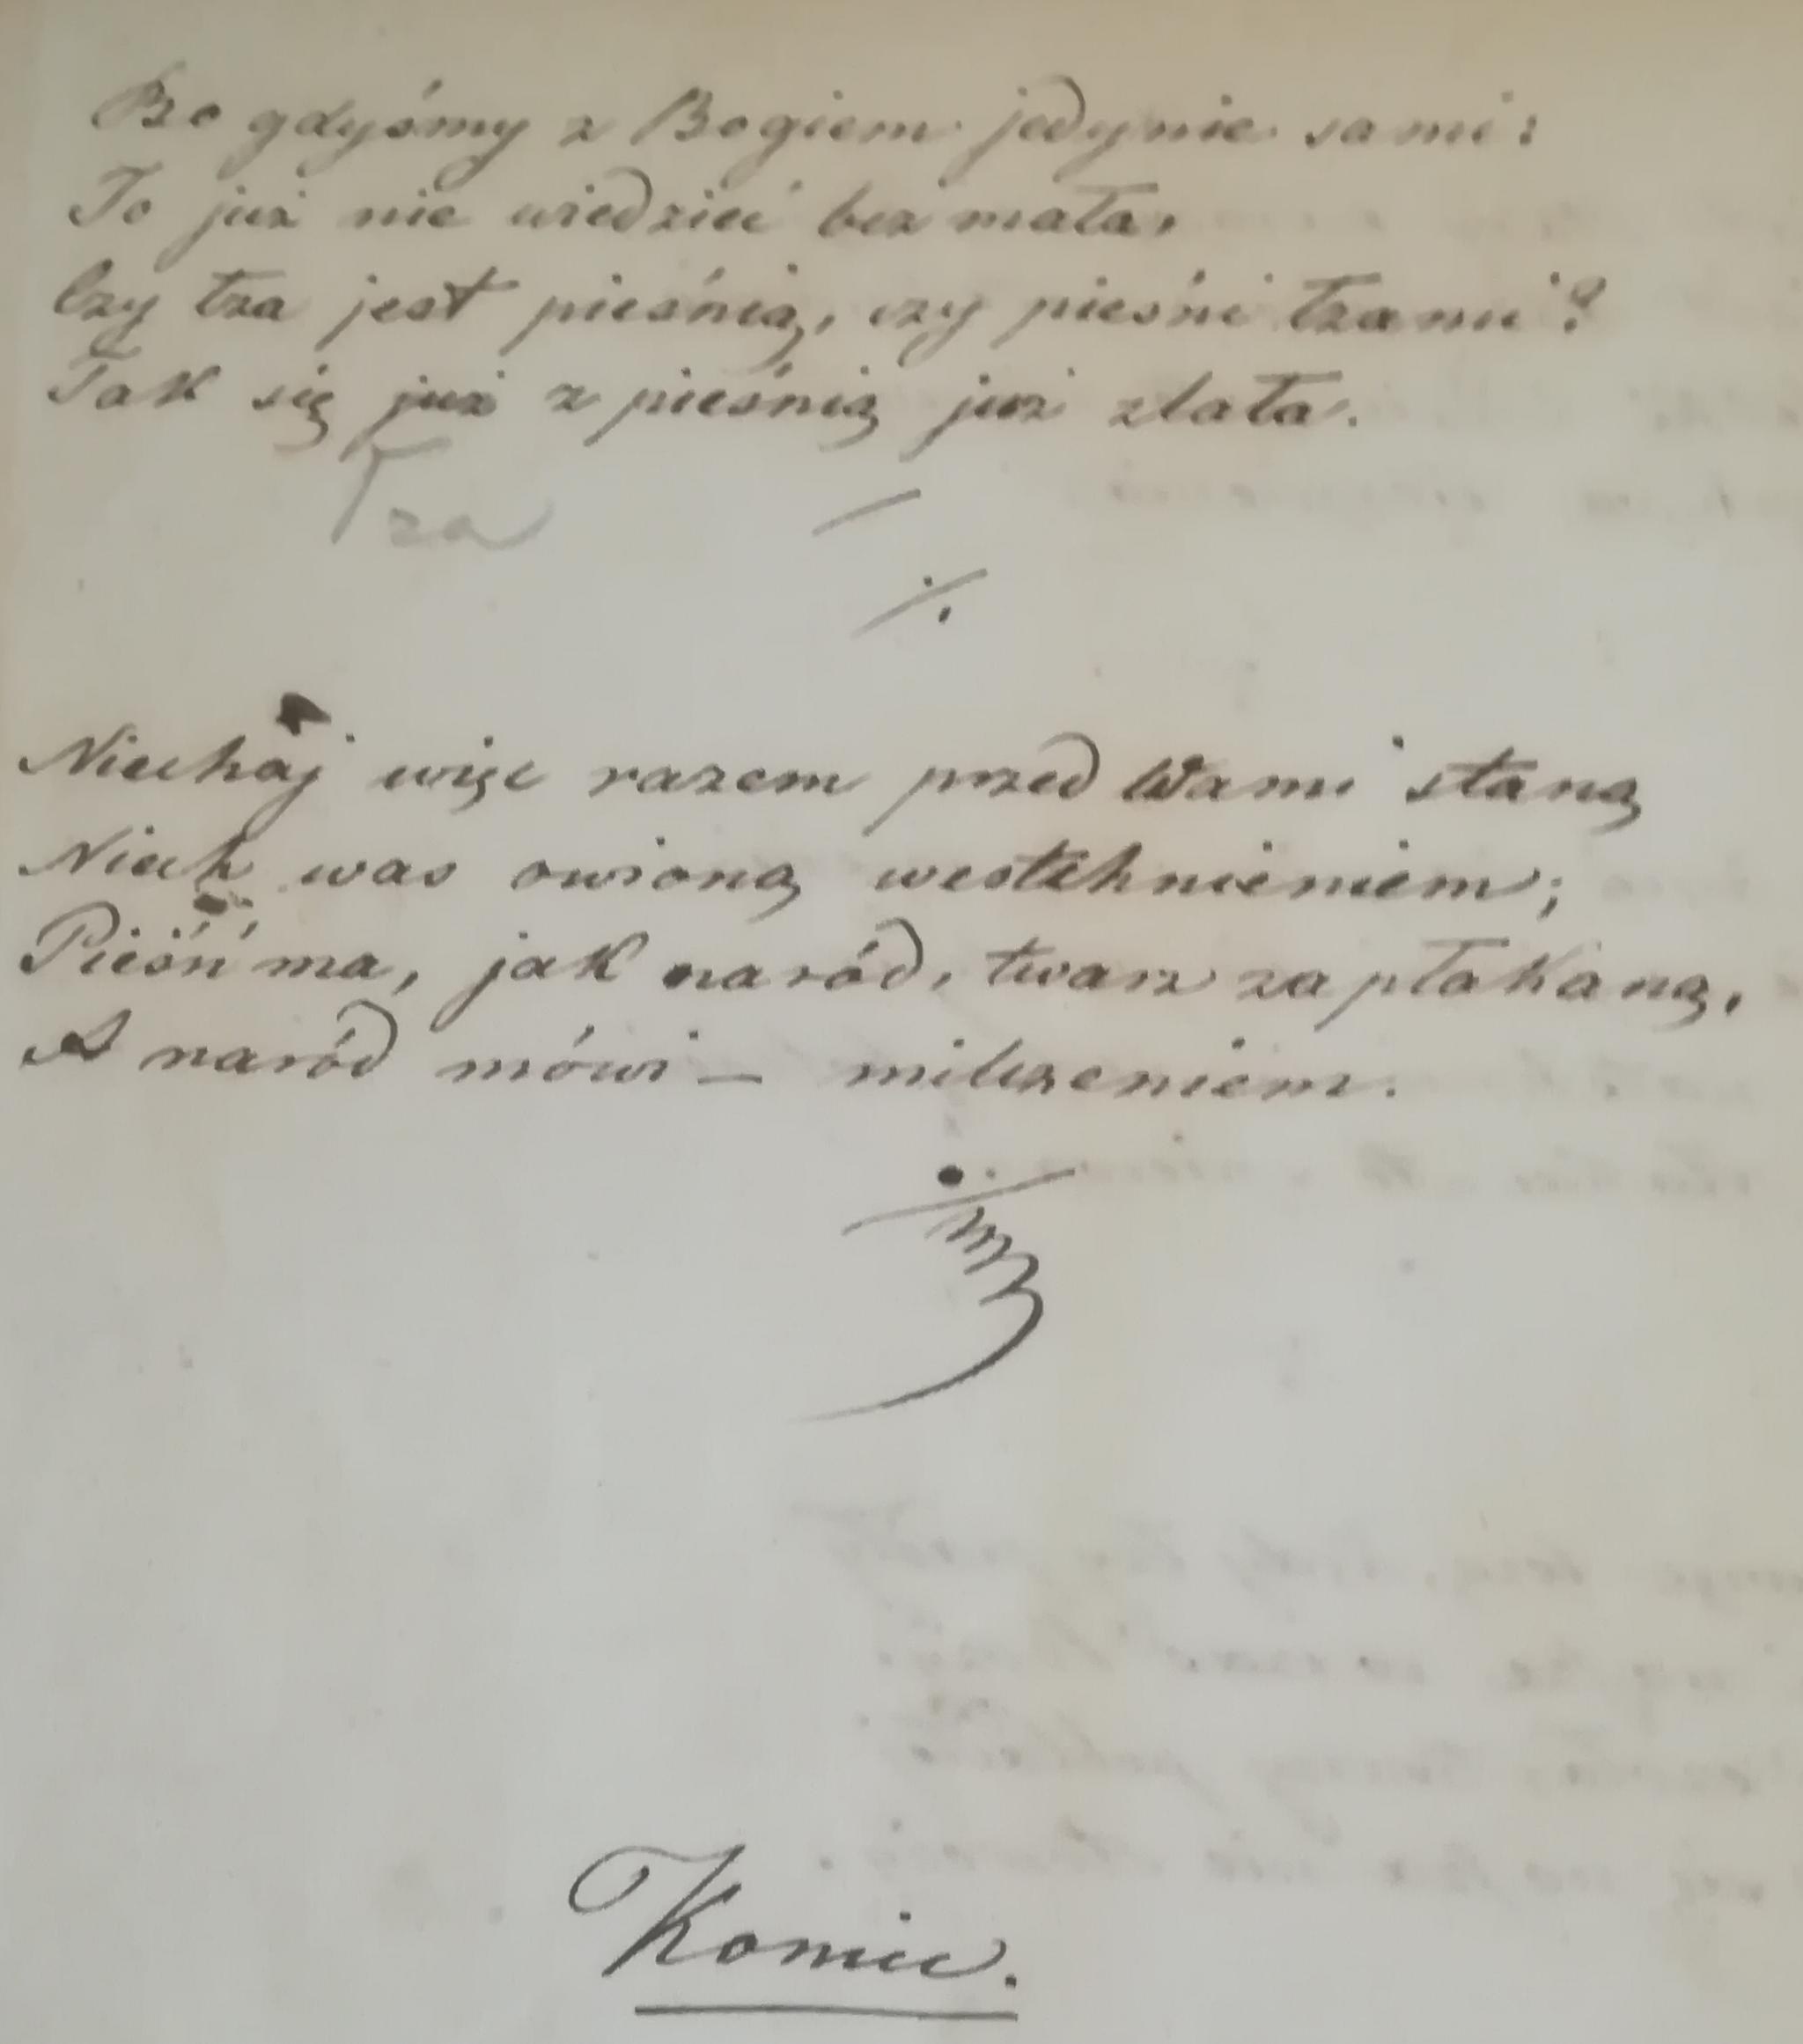 Bo gdyśmy z Bogiem jedynie sami:
To już nie wiedzieć bez mała,
Czy łza jest pieśnią, czy pieśni łzami?
Tak się już z pieśnią już zlała.
Łza
Niechaj więc razem przed Wami staną
Niech was owioną westchnieniem;
Pieśń ma, jak naród, twarz zapłakaną,
A naród mówi — milczeniem.
Koniec.